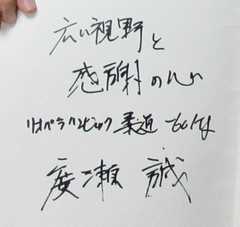 広い視野と
感謝の心
リオパラリンピック 柔道 60kg
廣瀬 誠